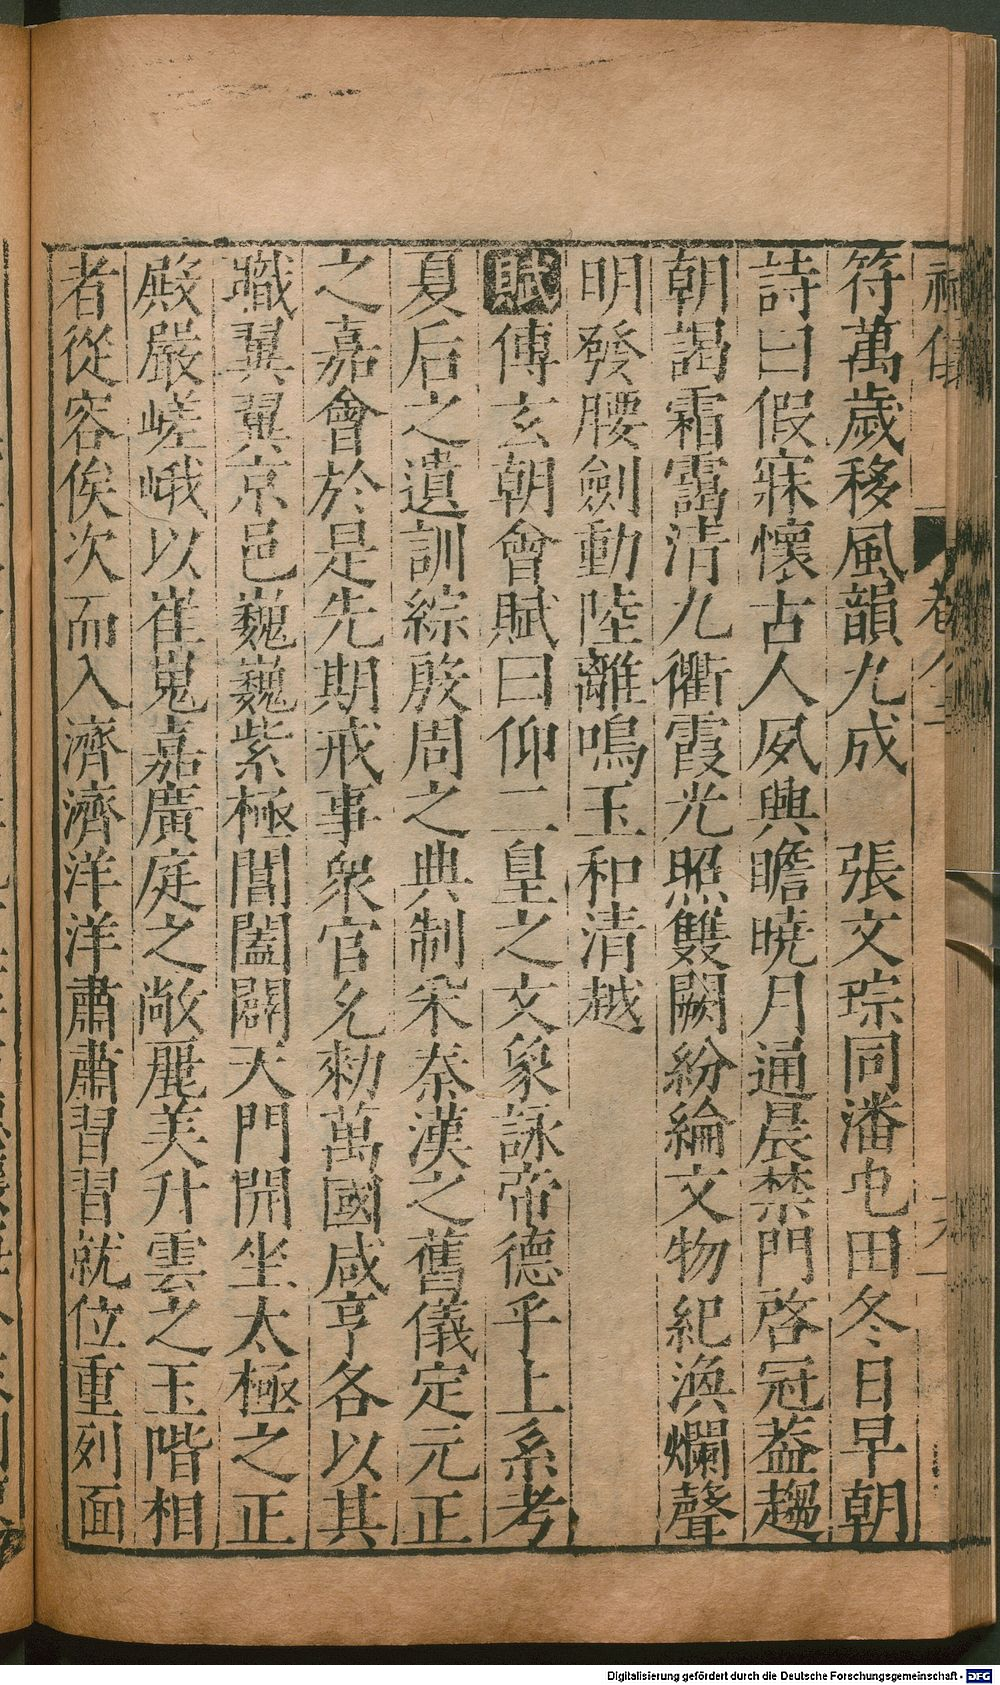 符萬歲移風韻九成　張文琮同潘屯田冬日早朝
詩曰假寐懷古人夙興瞻曉月通晨禁門啓冠蓋趨
朝謁霜靄清九衢霞光照雙闕紛綸文物紀渙爛聲
明發腰劍動陸離鳴玉和清越
賦傅玄朝會賦曰仰二皇之文象詠帝德乎上系考
夏后之遺訓綜殷周之典制采秦漢之舊儀定元正
之嘉會於是先期戒事衆官允勑萬國咸亨各以其
職翼翼京邑巍巍紫極閶闔闢天門開坐太極之正
殿嚴嵯峨以崔嵬嘉廣庭之敞麗美升雲之玉階相
者從容俟次而入濟濟洋洋肅肅習習就位重列面
Digitalisierung gefördert durch die Deutsche Forschungsgemeinschaft - DFG